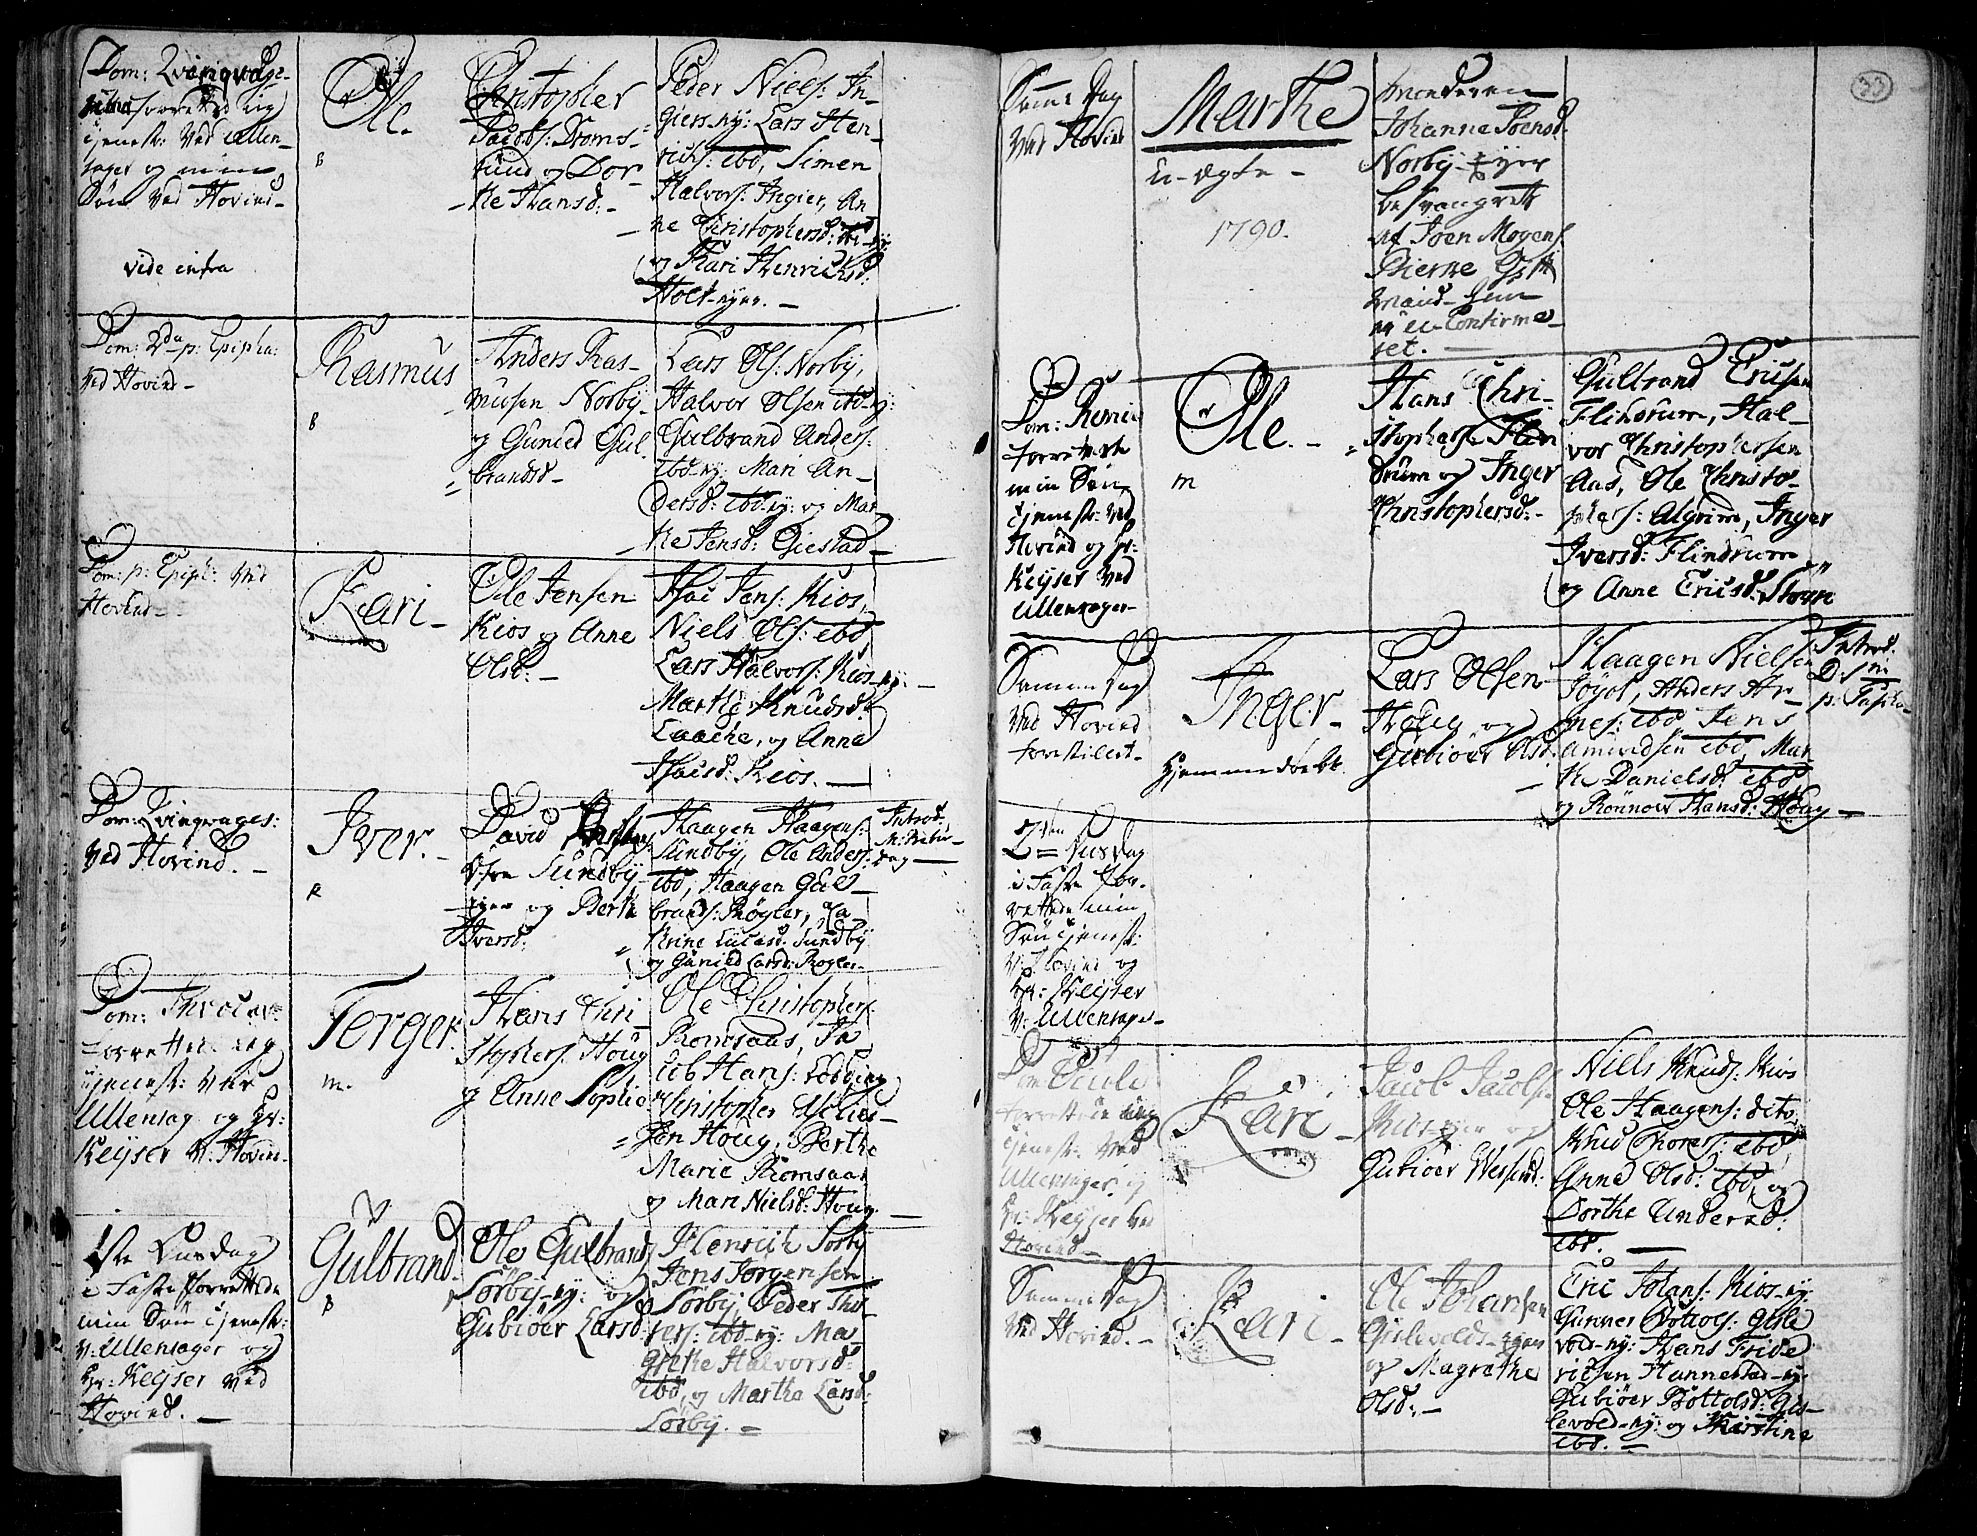 Dom: Qvinqvage-
forrettede Lig
tjenest: ved Ullen-
sager og min
Søn ved Hovind-
vide infra
Ole.
B
Christopher
Jacobs: Doms-
lund og Dor-
the Hansd:-
Peder Niels: In-
giers-ny: Lars Hen-
richs: ibd, Simen
Halvors: Ingier, An-
ne Christophersd:
og Kari Henrichsd:
Holt-eyer.-
Dom: 2da p: Epipha:
ved Hovind-
Rasmus
B
Anders Ras-
musen Norby-
og Gunild Gul-
brandsd-
Lars Ols: Norby,
Halvor Olsen ibd-ny:
Gulbrand Anders:
ibd-ny: Mari An-
dersd: ibd-ny: og Mar-
the Jensd: Giestad-
Dom: p: Epiph: ved
Hovind-
Kari-
Ole Jensen
Kios og Anne
Olsd:-
Isac Jens: Kios,
Niels Ols: ibd
Lars Halvors: Kios-ny:-
Marthe Knudsd:
Laache, og Anne
Isacsd: Kios.-
Dom: Qvinqvages:
ved Hovind.-
Iver.-
David
Sundby-
eyer og Berthe
Iversd:
Haagen Haagens:
Sundby, Ole Anders:
ibd, Haagen Gul-
brands: Røgler, Ca-
thrine Lucasd: Sundby
og Gunild Larsd: Røgler-
Introd.
dag-
Dom: Invocav:
forrettede Lig
tjenest: ved
Ullensag og Hr:
Keyser v: Hovind.
Torger.
m.
Hans Chri-
stophers: Houg
og Anne Sophie
Ole Christophers:
Romsaas, Ja-
cob Hans:
Christopher
Houg, Berthe
Marie Romsaas
og Mari Nielsd: Houg.-
1ste Tirsdag
i Faste forrettede
min Søn tjenest:
v: Ullensager og
Hr: Keyser ved
Hovind.-
Gulbrand.
B
Ole Gulbrands:
Sørby-ny: og
Gubiøer Larsd:
Henrich Sørby
Jens Jørgensen
Sørby, Peder Thor-
ers: ibd-ny: Ma-
grethe Halvorsd:
ibd, og Marthe Larsd:
Sørby.-
33
Samme Dag
ved Hovind
Marthe
u-ægte-
1790.
Moderen
Johanne Joensd:
Norby-eyer
besvangret
af Joen Mogens:
Bierke
mand-som
er u-Confirme-
ret.-
Dom: Remin:
forrettede
min Søn
tjenest: ved
Hovind og Hr:
Keyser ved
Ullensager-
Ole.-
m
Hans Chri-
stophers: Flin-
drum og Inger
Christophersd:-
Gulbrand Ericsen
Flindrum, Hal-
vor Christophersen
Aas, Ole Christo-
phers: Algrim, Inger
Iversd: Flindrum
og Anne Ericsd:
Samme Dag
ved Hovind
forestillet-
Inger-
hjemmedøbt
Lars Olsen
Houg og
Gubiøer Olsd:
Haagen Nielsen
Anders Ar-
nes: ibd Jens
Amundsen ibd, Mar-
the Danielsd: ibd
og Rønnow Hansd: Houg-
Introd.
2den Tirsdag
i Faste for-
rettede min
Søn tjenest:
v: Hovind og
Hr: Keyser
v: Ullensager-
Dom: Oculi
forrettede Lig
tjenest: ved
Ullensager og
Hr: Keyser ved
Hovind-
Kari-
Jacob Jacobs:
Kios-eyer og
Gubiøer
Niels Knuds: Kios
Ole Haagens: dito
Knud Thores: ibd
Anne Olsd: ibd, og
Dorthe Andersd:
ibd.-
Samme Dag
ved Hovind.-
Kari-
Ole Johansen
Gislevolds-eyer
og Magrethe
Olsd:-
Eric Johans: Kios-ny
Gunner Bottols: Gisle-
vold-ny: Hans Fride-
richsen Hannestad-ny:
Gubiøer Bottolsd: Gis-
levold-ny: og Kirstine
ibd.-